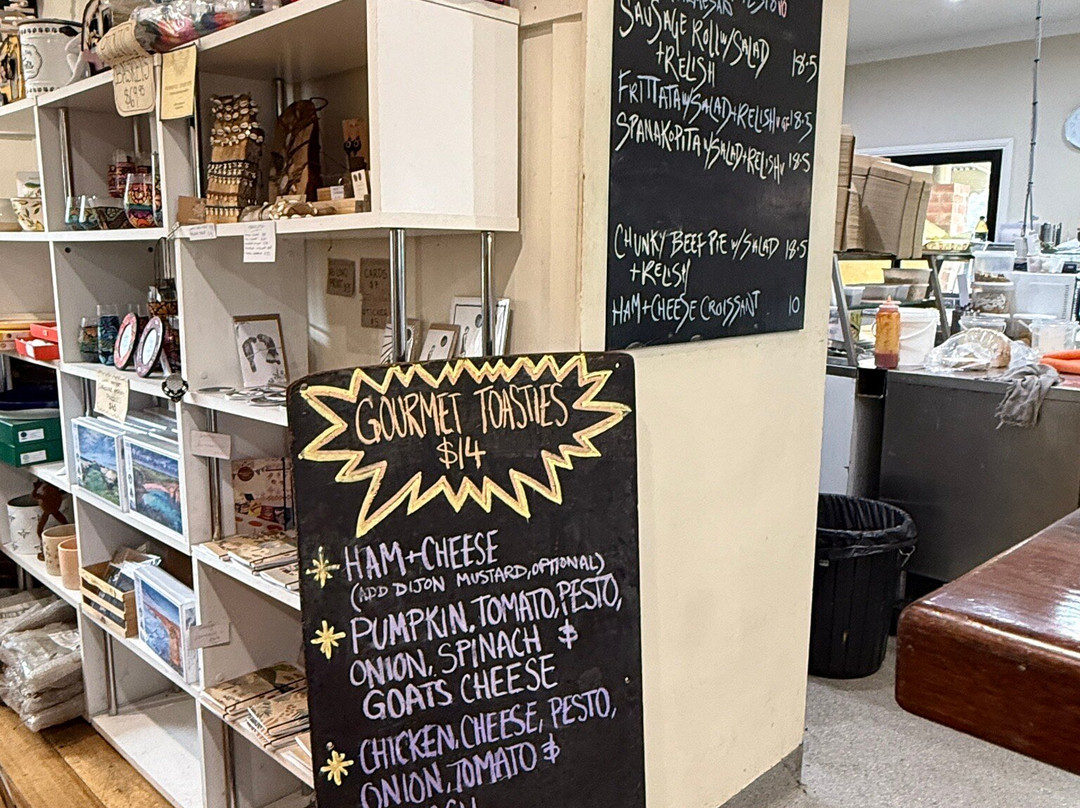 BASKETS
$69.95
SAUSAGE ROLL W/SALAD
+RELISH 18.5
FRITTATA W/SALAD+RELISH 18.5
SPANAKOPITA W/SALAD+RELISH V 18.5
CHUNKY BEEF PIE W/SALAD 18.5
+RELISH
HAM+CHEESE CROISSANT 10
CARDS
GOURMET TOASTIES
$14
HAM+CHEESE
(ADD DIJON MUSTARD, OPTIONAL)
PUMPKIN, TOMATO, PESTO,
ONION, SPINACH &
GOATS CHEESE
CHICKEN, CHEESE, PESTO,
ONION, TOMATO &